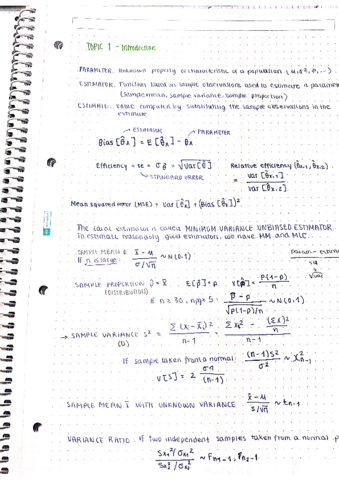 TOPIC 1 - Introduction
PARAMETER: Unknown property or characteristic of a population (μ, σ², p, ...).
ESTIMATOR: Function based in sample observations used to estimate a parameter
(sample mean, sample variance, sample proportion)
ESTIMATE: Value computed by substituting the sample observations in the
estimate.
ESTIMATOR PARAMETER
Bias [θ̂x] = E [θ̂x] - θx
Efficiency = se = σθ̂ = √Var[θ̂] Relative efficiency (θ̂x,1, θ̂x,2)
STANDARD ERROR = Var [θ̂x,1] / Var [θ̂x,2]
Mean squared error (MSE) = Var [θ̂x] + (Bias [θ̂x])²
The ideal estimator is called MINIMUM VARIANCE UNBIASED ESTIMATOR.
To estimate reasonably good estimators, we have MM and MLE.
SAMPLE MEAN
If n is large: (x̄ - μ) / (σ/√n) ~ N(0,1)
SAMPLE PROPORTION p̂ = x̄ E[p̂] = p V[p̂] = p(1-p) / n
(DISTRIBUTION)
If n ≥ 30, (p̂ - p) / √(p(1-p)/n) ~ N(0,1)
→ SAMPLE VARIANCE S² = Σ(xi - x̄)² / (n-1) = (Σxi² - (Σxi)²/n) / (n-1)
If sample taken from a normal: (n-1)S² / σ² ~ χ²n-1
V[S²] = 2σ⁴ / (n-1)
SAMPLE MEAN x̄ WITH UNKNOWN VARIANCE: (x̄ - μ) / (S/√n) ~ tn-1
VARIANCE RATIO: If two independent samples taken from a normal
~ Fn1-1, n2-1